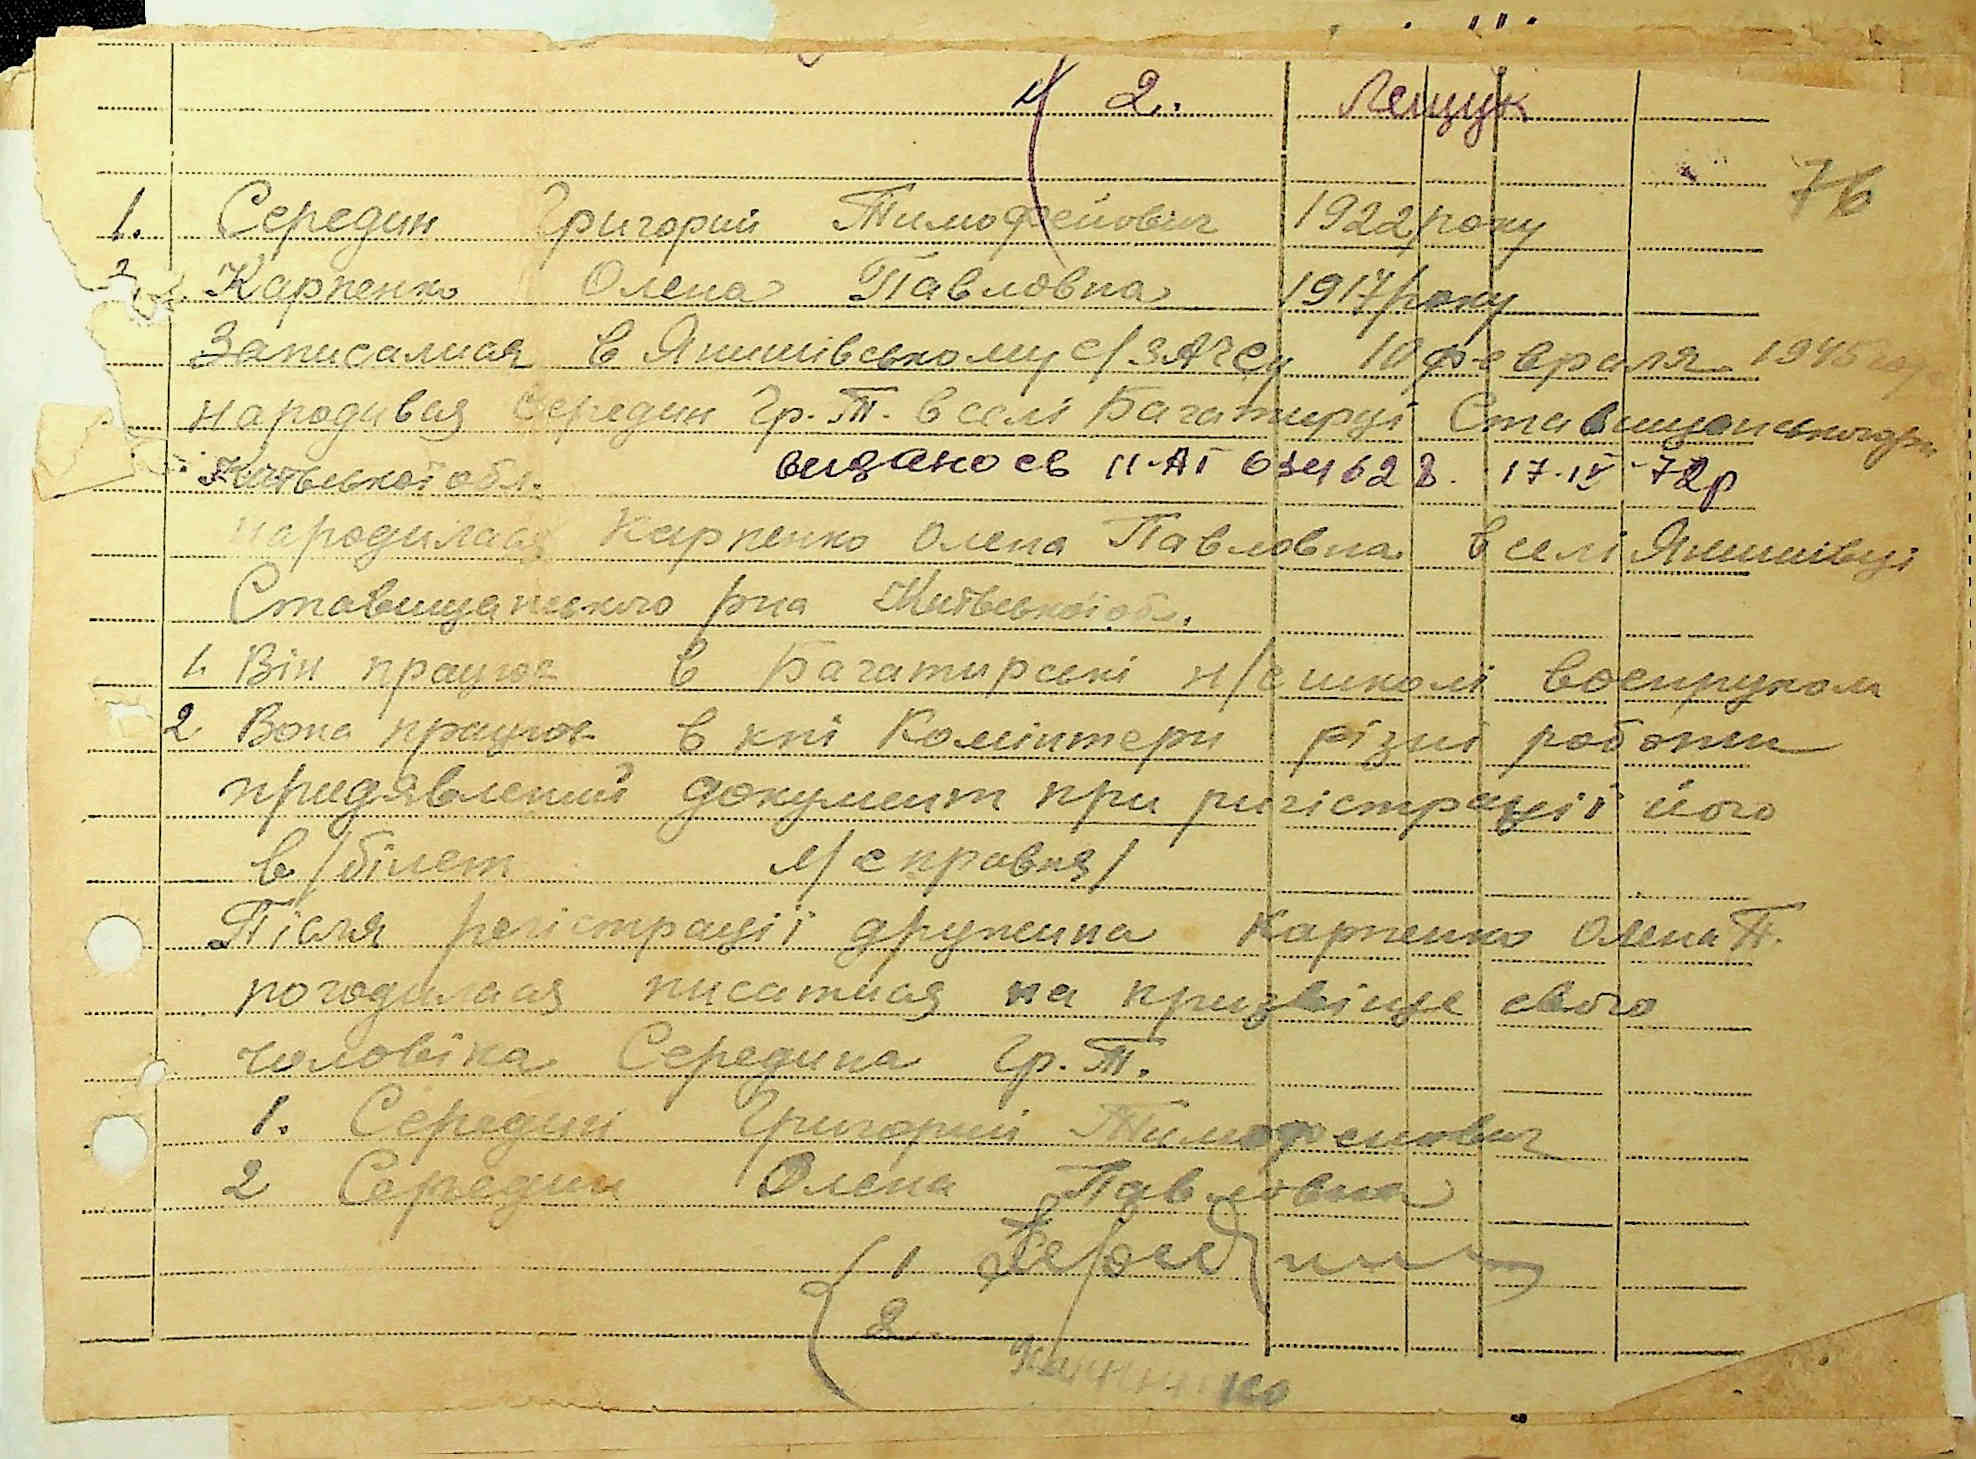 2. Лещук
76
1. Середин Григорий Тимофейович 1922 року
2 Карпенко Олена Павловна 1917 року
Записалися в Янишівському с/ЗАГСу 10 февраля 1945
народився Середин Гр. Т. в селі Багатирці Ставищанського рн
Київської обл. видано св II-АГ 17.IV-72р
народилася Карпенко Олена Павловна в селі Янишівці
Ставищанського р/на Київської обл.
1. Він працює в Багатирські н/с школі военруком
2 Вона працює в кгі Комінтерн різні роботи
придявлений документ при регістрації його
в/білет її /справка/
Після регістрації дружина Карпенко Олена П.
погодилася писатися на призвіще свого
чоловіка Середина Гр. Т.
1. Середин Григорий Тимофейович
2 Середин Олена Павловна
1
2